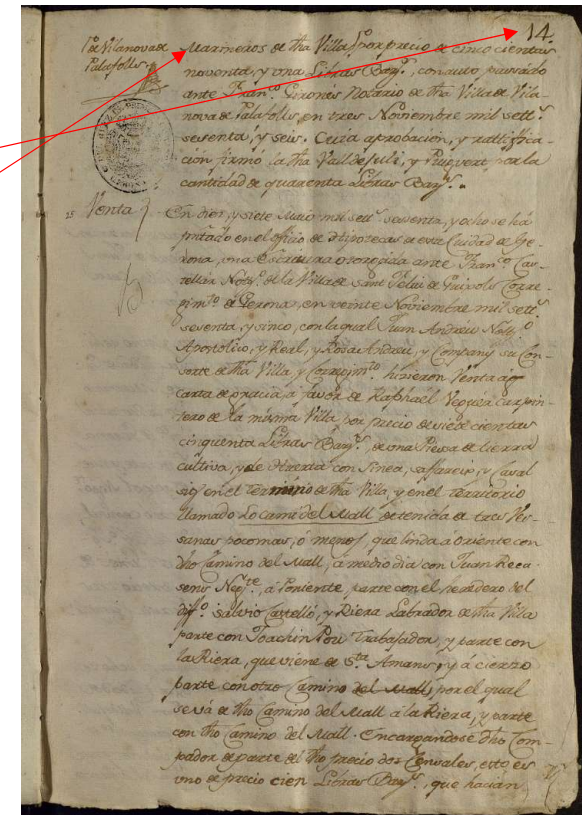 14.
Pᵈᵉ Vilanova de
Palafolls.
Marineros de dha Villa por precio de cinco cientas
noventa, y una Libras Barᵃ., con auto passado
ante Franᶜᵒ. Gironés Notario de dha Villa de Vila-
nova de Palafolls, en tres Noviembre mil settᵗˢ.
sesenta, y seis. Cuia aprobacion, y rattiffica-
cion firmó la dha Vall de
cantidad de quarenta Libras Barᵃˢ.
15 Venta
En diez, y siete Maio mil settᵗˢ. sesenta, y ocho se há
en el officio de Hipotecas de esta Ciudad de Ge-
rona, una Escritura otorgida ante Franᶜᵒ. Cas-
tellár Notᵒ. de la Villa de Sant Feliu de Guixols Corre-
gimᵗᵒ. de Gerona, en veinte Noviembre mil settᵗˢ.
sesenta, y sinco, con la qual Juan Andreu Nottᵒ.
Apostolico, y Real, y Rosa Andreu, y Company su Con-
sorte de dha Villa, y Corregimᵗᵒ. hizieron Venta á
carta de gracia, á favor de Raphaél carpin-
tero de la misma Villa, por precio de siete cientas
cinquenta Libras Barᵃˢ. de una Piessa de tierra
cultiva, y de Huerta con Sinea, saffareig, y Casal
en el termino de dha Villa, y en el territorio
llamado Lo cami del Mall de tenida de tres Ver-
sanas poco mas, o menos, que linda á Oriente con
dho Camino del Mall, á medio dia con Juan Reca-
sens Negᵗᵉ., á Poniente, parte con el heredero del
difᵒ. Salvio Castelló, y Riera Labrador de dha Villa
parte con Joachin Pou Trabajador, y parte con
la Riera, que viene de Sᵗᵃ. Amans, y á cierzo
parte con otro Camino del Mall, por el qual
se vá de dho Camino del Mall á la Riera, y parte
con dho Camino del Mall. Encargandose dho Com-
prador de parte del dho precio dos Censales, esto es
uno de precio cien Libras Barᵃˢ., que hacian